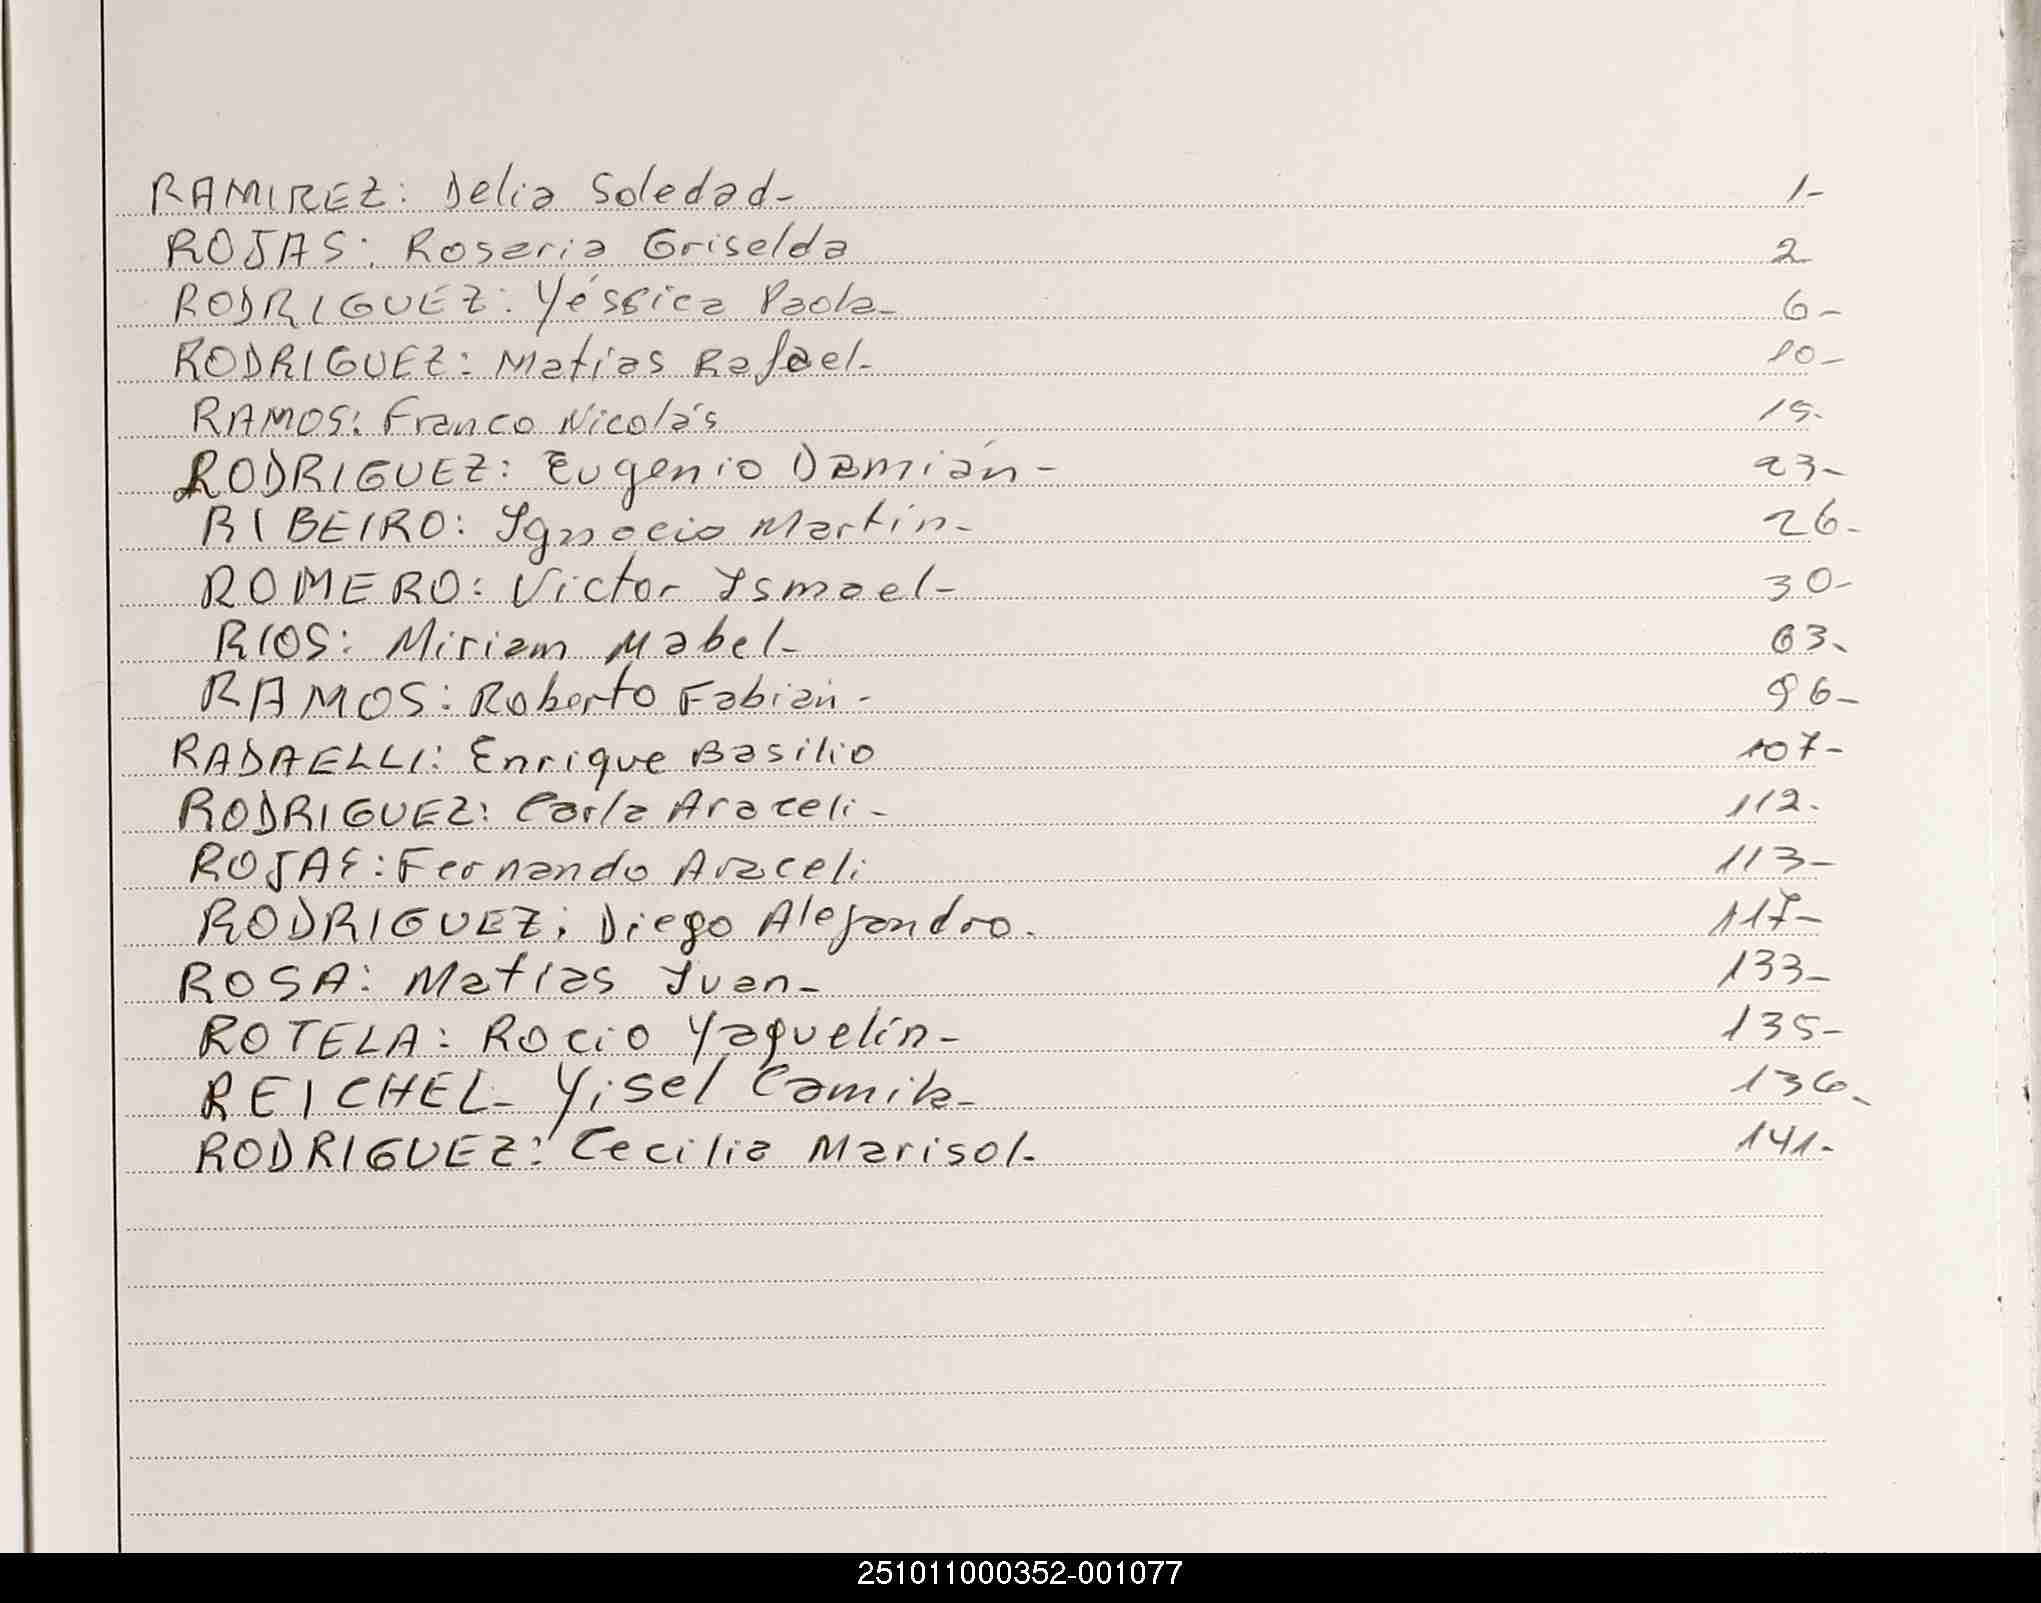 RAMIREZ: Delia Soledad- 1-
ROJAS: Rosaria Griselda 2-
RODRIGUEZ: Yéssica Paola- 6-
RODRIGUEZ: Matías Rafael- 10-
RAMOS: Franco Nicolás 15-
RODRIGUEZ: Eugenio Damián- 23-
RIBEIRO: Ignacio Martín- 26-
ROMERO: Victor Ismael- 30-
RIOS: Miriam Mabel- 63-
RAMOS: Roberto Fabián- 96-
RADAELLI: Enrique Basilio 107-
RODRIGUEZ: Carla Araceli- 112-
ROJAS: Fernando Araceli 113-
RODRIGUEZ: Diego Alejandro. 117-
ROSA: Matías Juan- 133-
ROTELA: Rocio Yaquelín- 135-
REICHEL- Yisel Camila- 136-
RODRIGUEZ: Cecilia Marisol- 141-
251011000352-001077